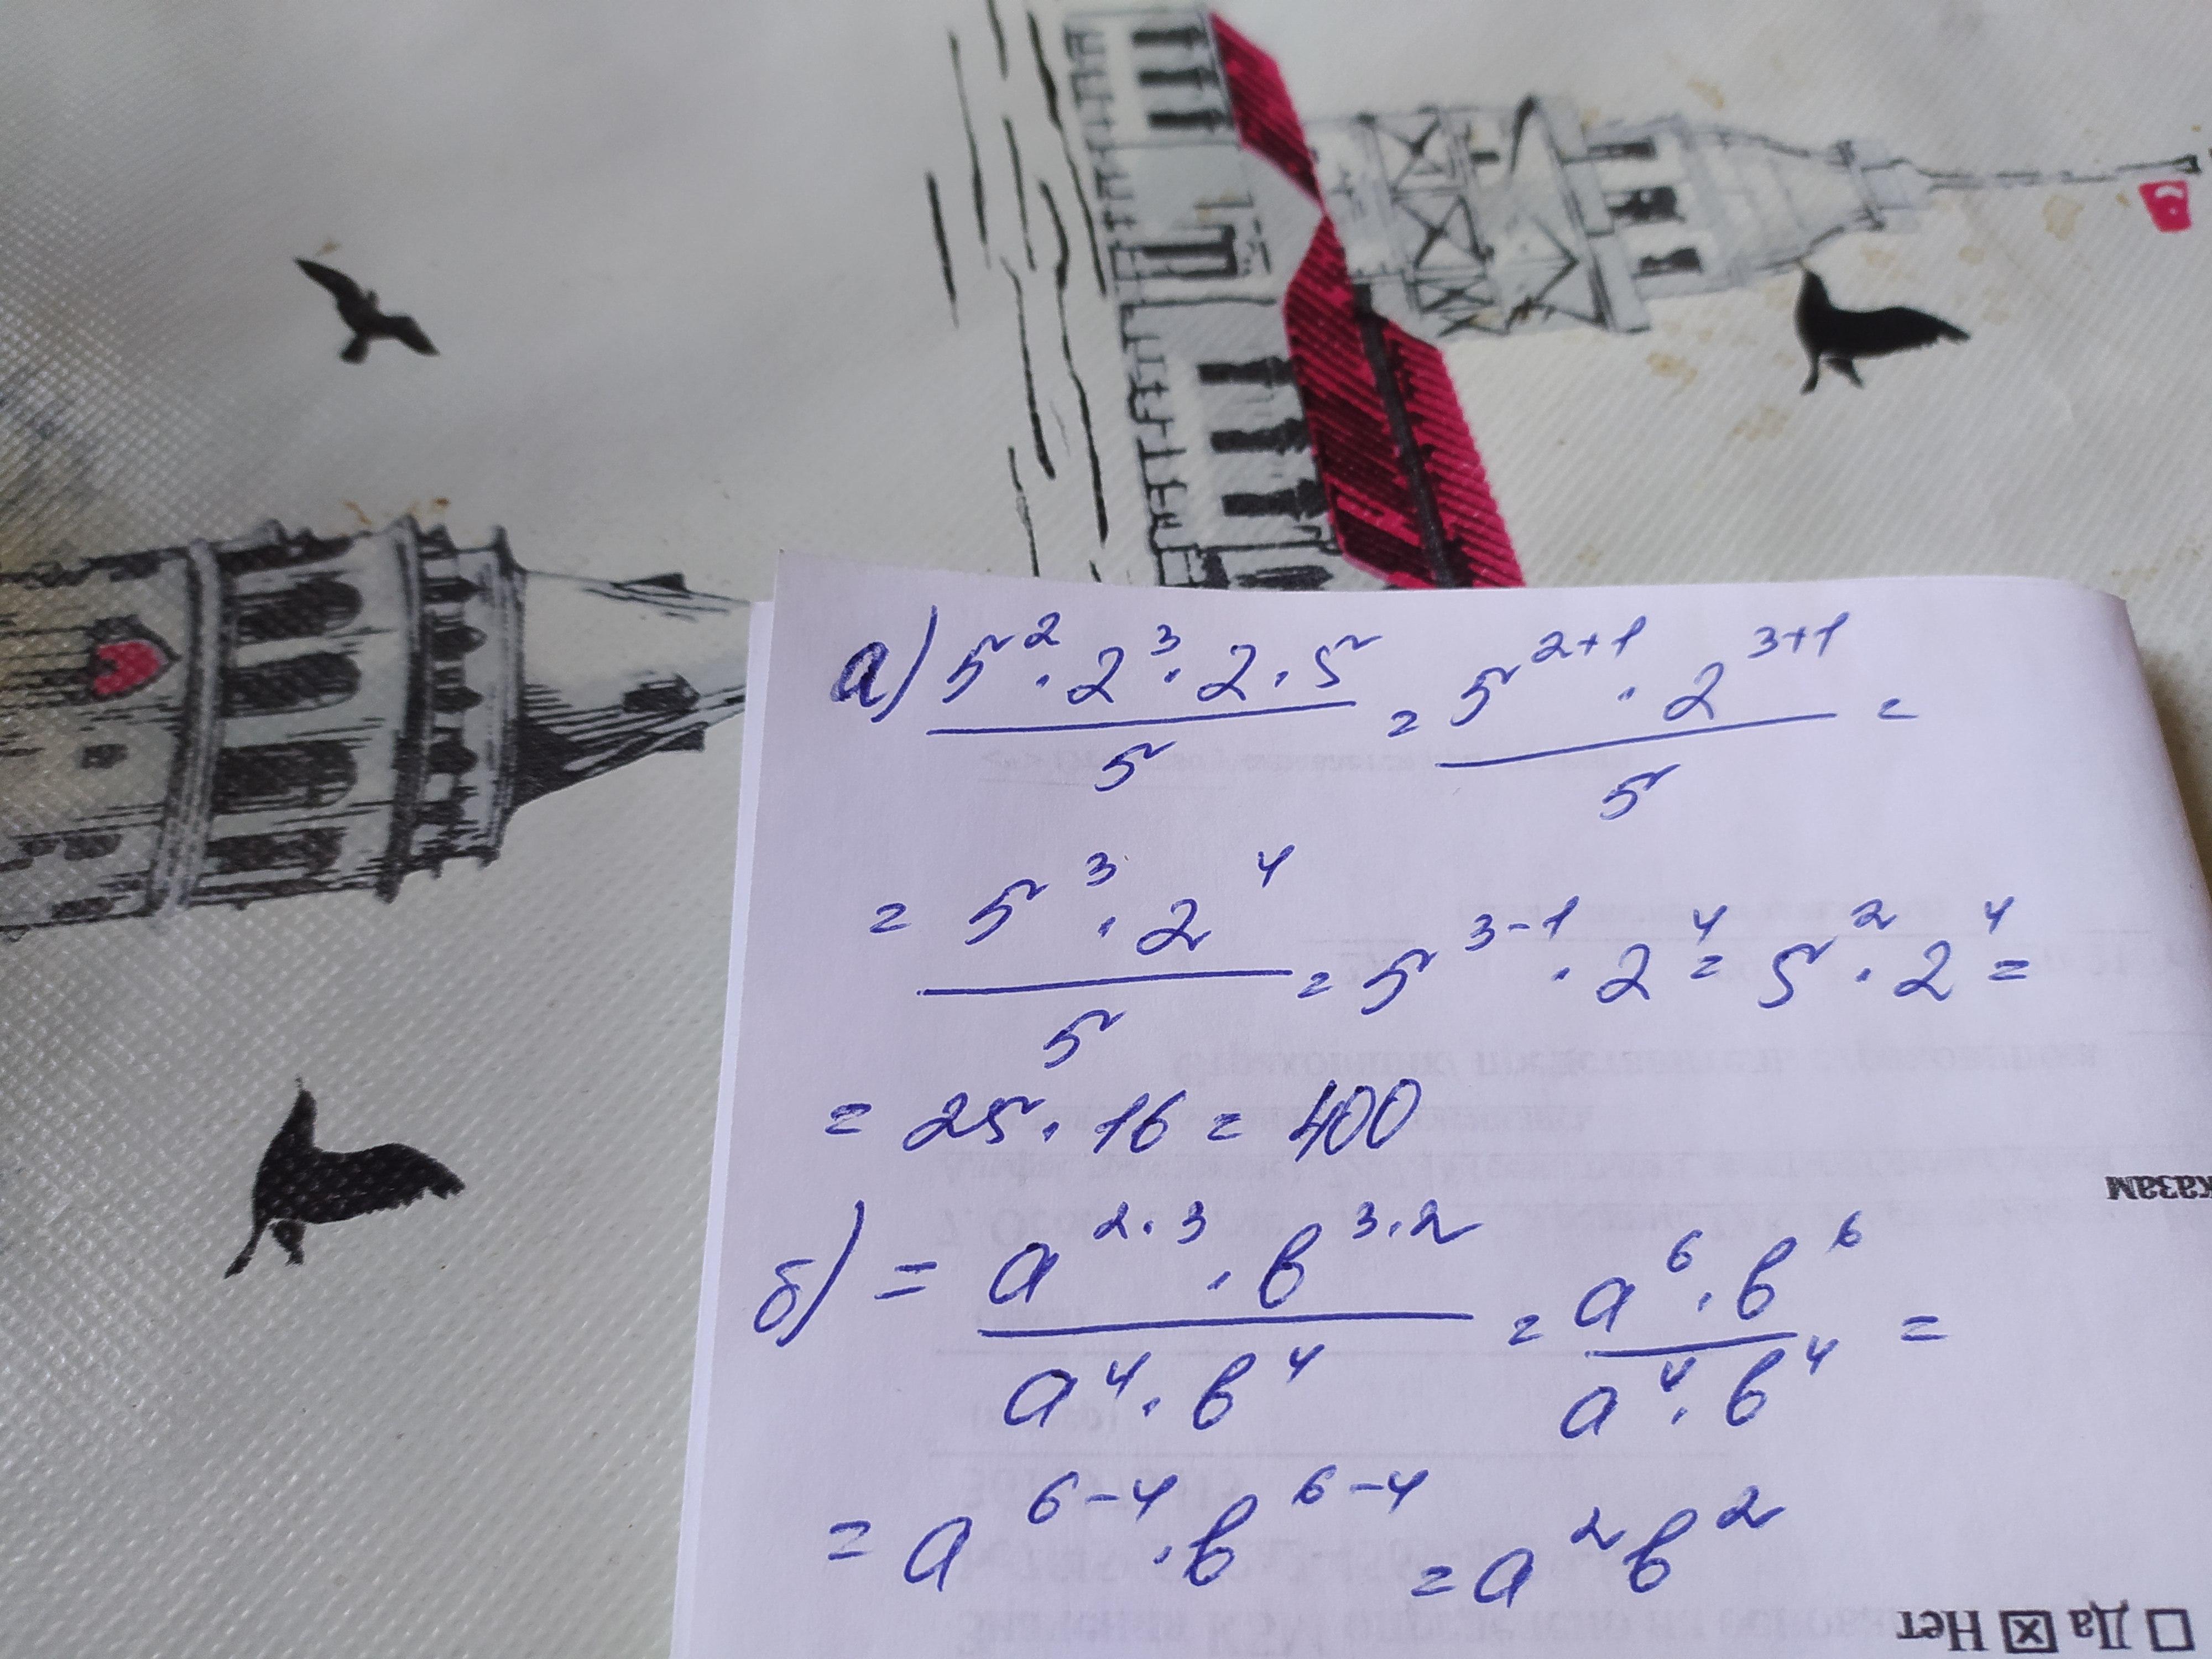 а) 5²·2³·2·5 / 5 = 5²⁺¹·2³⁺¹ / 5 =
= 5³·2⁴ / 5 = 5³⁻¹·2⁴ = 5²·2⁴ =
= 25·16 = 400
казам
б) = a^(2·3)·b^(3·2) / a⁴·b⁴ = a⁶·b⁶ / a⁴·b⁴ =
= a⁶⁻⁴·b⁶⁻⁴ = a²b²
☐ Да ☒ Нет